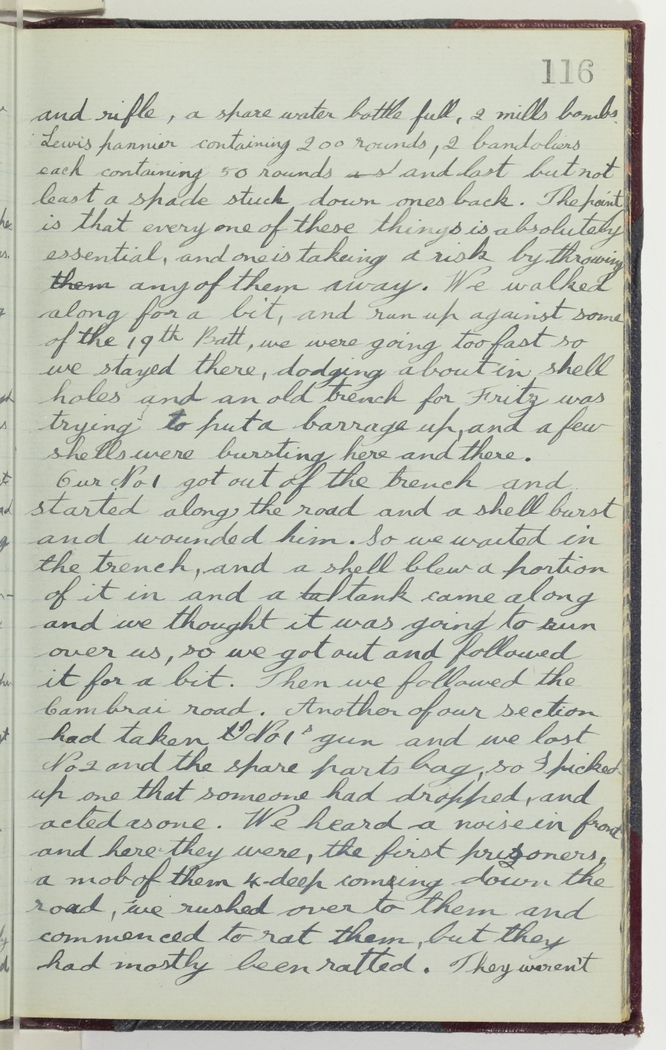 116
and rifle, a spare water bottle full, 2 mills bombs
Lewis pannier containing 200 rounds, 2 bandoliers
each containing 50 rounds and last but not
least a spade stuck down ones back. The point
is that every one of these things is absolutely
essential, and one is takeing a risk by throwing
them any of them away. We walked
along for a bit, and run up against some
of the 19th Batt, we were going too fast so
we stayed there, dodging about in shell
holes and an old trench for Fritz was
trying to put a barrage up, and a few
shells were bursting here and there.
Our No 1 got out of the trench and
started along the road and a shell burst
and wounded him. So we waited in
the trench, and a shell blew a portion
of it in and a tank came along
and we thought it was going to run
over us, so we got out and followed
it for a bit. Then we followed the
Cambrai road. Another of our section
had taken No 1s gun and we lost
No 2 and the spare parts bag, so I picked
up one that someone had dropped, and
acted as one. We heard a noise in front
and here they were, the first prisoners,
a mob of them 4 deep coming down the
road, we rushed over to them and
commenced to rat them, but they
had mostly been ratted. They weren't